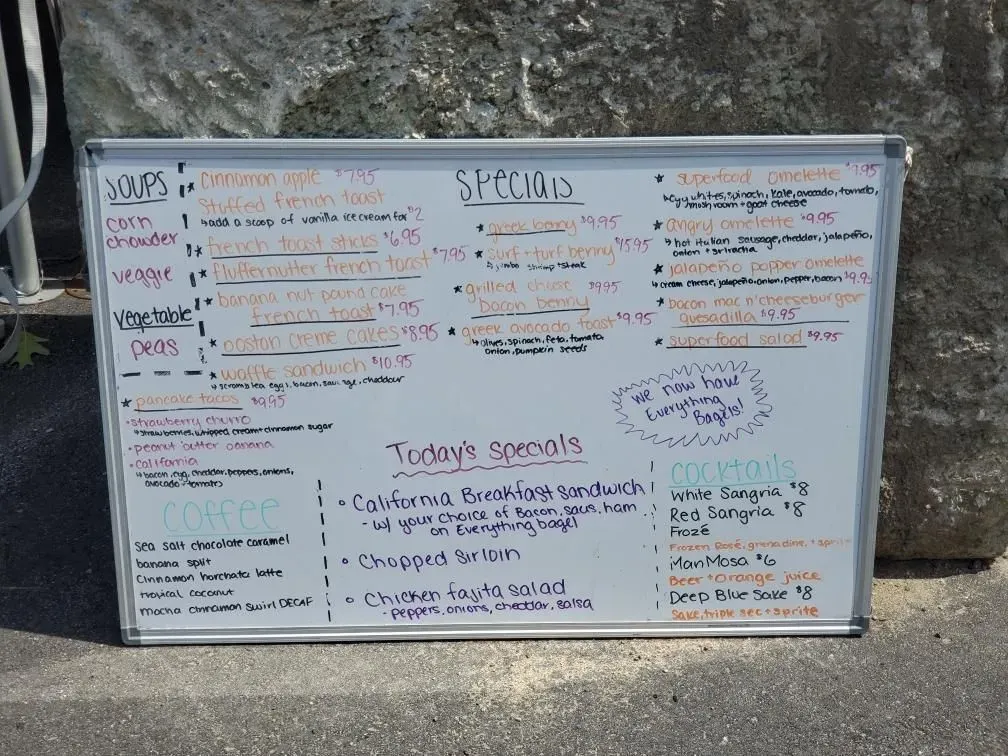 SOUPS
corn
chowder
veggie
vegetable
peas
* cinnamon apple $7.95
Stuffed french toast
↳ add a scoop of vanilla ice cream for $2
* french toast sticks $6.95
* fluffernutter french toast $7.95
* banana nut pound cake
french toast $7.95
* boston creme cakes $8.95
* waffle sandwich $10.95
↳ scrambled eggs, bacon, sausage, cheddar
* pancake tacos $9.95
• strawberry churro
↳ strawberries, whipped cream + cinnamon sugar
• peanut butter banana
• california
↳ bacon, egg, cheddar, peppers, onions,
avocado + tomatoes
Specials
* greek benny $9.95
* surf + turf benny $15.95
↳ jumbo shrimp + steak
* grilled chuse $9.95
bacon benny
* greek avocado toast $9.95
↳ olives, spinach, feta, tomato
onion, pumpkin seeds
* superfood omelette $9.95
↳ egg whites, spinach, kale, avocado, tomato,
mushroom + goat cheese
* angry omelette $9.95
↳ hot italian sausage, cheddar, jalapeño,
onion + sriracha
* jalapeño popper omelette
↳ cream cheese, jalapeño, onion, pepper, bacon $9.95
* bacon mac n' cheeseburger
quesadilla $9.95
* superfood salad $9.95
We now have
Everything
Bagels!
Coffee
Sea salt chocolate caramel
banana split
Cinnamon horchata latte
tropical coconut
mocha cinnamon swirl DECAF
Today's Specials
• California Breakfast sandwich
- w/ your choice of Bacon, saus, ham
on Everything bagel
• Chopped Sirloin
• Chicken fajita salad
- peppers, onions, cheddar, salsa
COCKTAILS
White Sangria $8
Red Sangria $8
Frozé
Frozen Rosé, grenadine, + sprite
ManMosa $6
Beer + Orange juice
Deep Blue Sake $8
Sake, triple sec + sprite